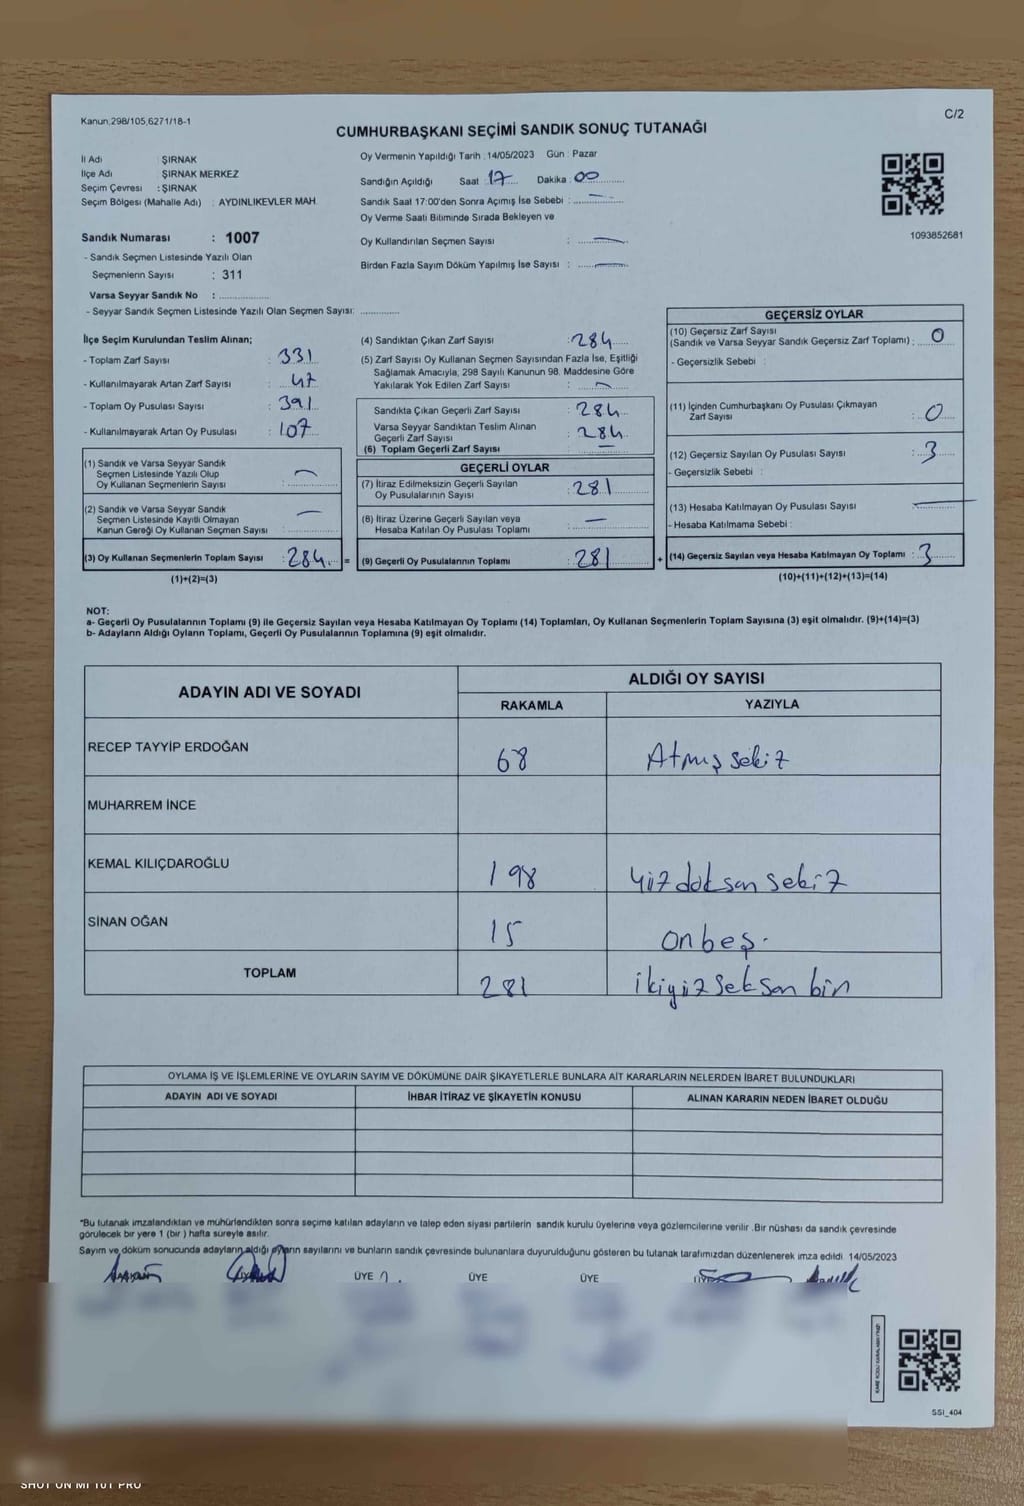 Kanun;298/105,6271/18-1
C/2
CUMHURBAŞKANI SEÇİMİ SANDIK SONUÇ TUTANAĞI
İl Adı : ŞIRNAK
İlçe Adı : ŞIRNAK MERKEZ
Seçim Çevresi : ŞIRNAK
Seçim Bölgesi (Mahalle Adı) : AYDINLIKEVLER MAH.
Sandık Numarası : 1007
- Sandık Seçmen Listesinde Yazılı Olan
Seçmenlerin Sayısı : 311
Varsa Seyyar Sandık No :
- Seyyar Sandık Seçmen Listesinde Yazılı Olan Seçmen Sayısı:
Oy Vermenin Yapıldığı Tarih : 14/05/2023 Gün : Pazar
Sandığın Açıldığı Saat : 17 Dakika : 00
Sandık Saat 17:00'den Sonra Açımış İse Sebebi : —
Oy Verme Saati Bitiminde Sırada Bekleyen ve
Oy Kullandırılan Seçmen Sayısı : —
Birden Fazla Sayım Döküm Yapılmış İse Sayısı : —
1093852681
İlçe Seçim Kurulundan Teslim Alınan;
- Toplam Zarf Sayısı : 331
- Kullanılmayarak Artan Zarf Sayısı : 47
- Toplam Oy Pusulası Sayısı : 391
- Kullanılmayarak Artan Oy Pusulası : 107
(1) Sandık ve Varsa Seyyar Sandık
Seçmen Listesinde Yazılı Olup
Oy Kullanan Seçmenlerin Sayısı : —
(2) Sandık ve Varsa Seyyar Sandık
Seçmen Listesinde Kayıtlı Olmayan
Kanun Gereği Oy Kullanan Seçmen Sayısı : —
(3) Oy Kullanan Seçmenlerin Toplam Sayısı : 284 =
(1)+(2)=(3)
(4) Sandıktan Çıkan Zarf Sayısı : 284
(5) Zarf Sayısı Oy Kullanan Seçmen Sayısından Fazla İse, Eşitliği
Sağlamak Amacıyla, 298 Sayılı Kanunun 98. Maddesine Göre
Yakılarak Yok Edilen Zarf Sayısı : —
Sandıkta Çıkan Geçerli Zarf Sayısı : 284
Varsa Seyyar Sandıktan Teslim Alınan
Geçerli Zarf Sayısı : 284
(6) Toplam Geçerli Zarf Sayısı : —
GEÇERLİ OYLAR
(7) İtiraz Edilmeksizin Geçerli Sayılan
Oy Pusulalarının Sayısı : 281
(8) İtiraz Üzerine Geçerli Sayılan veya
Hesaba Katılan Oy Pusulası Toplamı : —
(9) Geçerli Oy Pusulalarının Toplamı : 281 +
GEÇERSİZ OYLAR
(10) Geçersiz Zarf Sayısı
(Sandık ve Varsa Seyyar Sandık Geçersiz Zarf Toplamı) : 0
- Geçersizlik Sebebi :
(11) İçinden Cumhurbaşkanı Oy Pusulası Çıkmayan
Zarf Sayısı : 0
(12) Geçersiz Sayılan Oy Pusulası Sayısı : 3
- Geçersizlik Sebebi :
(13) Hesaba Katılmayan Oy Pusulası Sayısı : —
- Hesaba Katılmama Sebebi :
(14) Geçersiz Sayılan veya Hesaba Katılmayan Oy Toplamı : 3
(10)+(11)+(12)+(13)=(14)
NOT:
a- Geçerli Oy Pusulalarının Toplamı (9) ile Geçersiz Sayılan veya Hesaba Katılmayan Oy Toplamı (14) Toplamları, Oy Kullanan Seçmenlerin Toplam Sayısına (3) eşit olmalıdır. (9)+(14)=(3)
b- Adayların Aldığı Oyların Toplamı, Geçerli Oy Pusulalarının Toplamına (9) eşit olmalıdır.
ADAYIN ADI VE SOYADI
ALDIĞI OY SAYISI
RAKAMLA YAZIYLA
RECEP TAYYİP ERDOĞAN 68 Atmış sekiz
MUHARREM İNCE
KEMAL KILIÇDAROĞLU 198 Yüz doksan sekiz
SİNAN OĞAN 15 onbeş.
TOPLAM 281 ikiyüz seksen bin
OYLAMA İŞ VE İŞLEMLERİNE VE OYLARIN SAYIM VE DÖKÜMÜNE DAİR ŞİKAYETLERLE BUNLARA AİT KARARLARIN NELERDEN İBARET BULUNDUKLARI
ADAYIN ADI VE SOYADI İHBAR İTİRAZ VE ŞİKAYETİN KONUSU ALINAN KARARIN NEDEN İBARET OLDUĞU
*Bu tutanak imzalandıktan ve mühürlendikten sonra seçime katılan adayların ve talep eden siyasi partilerin sandık kurulu üyelerine veya gözlemcilerine verilir .Bir nüshası da sandık çevresinde
görülecek bir yere 1 (bir ) hafta süreyle asılır.
Sayım ve döküm sonucunda adayların aldığı oyların sayılarını ve bunların sandık çevresinde bulunanlara duyurulduğunu gösteren bu tutanak tarafımızdan düzenlenerek imza edildi. 14/05/2023
ÜYE ÜYE ÜYE
SSI_404
SHOT ON MI 10T PRO